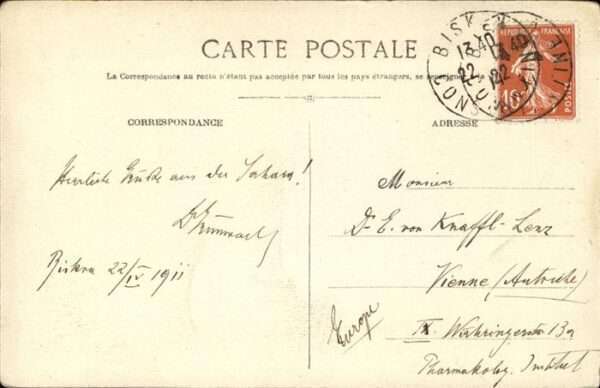 CARTE POSTALE
La Correspondance au recto n'étant pas acceptée par tous les pays étrangers, se renseigner à la
CORRESPONDANCE
ADRESSE
RÉPUBLIQUE FRANÇAISE
10
POSTES
BISKRA
CONSTANTINE
13 40
22
Herrliche Grüße aus der Sahara!
Biskra 22/IV 1911
Monsieur
Dr E. von Knaffl-Lenz
Vienne (Autriche)
IX. Währingerstr 13a
Pharmakolog. Institut
Europe